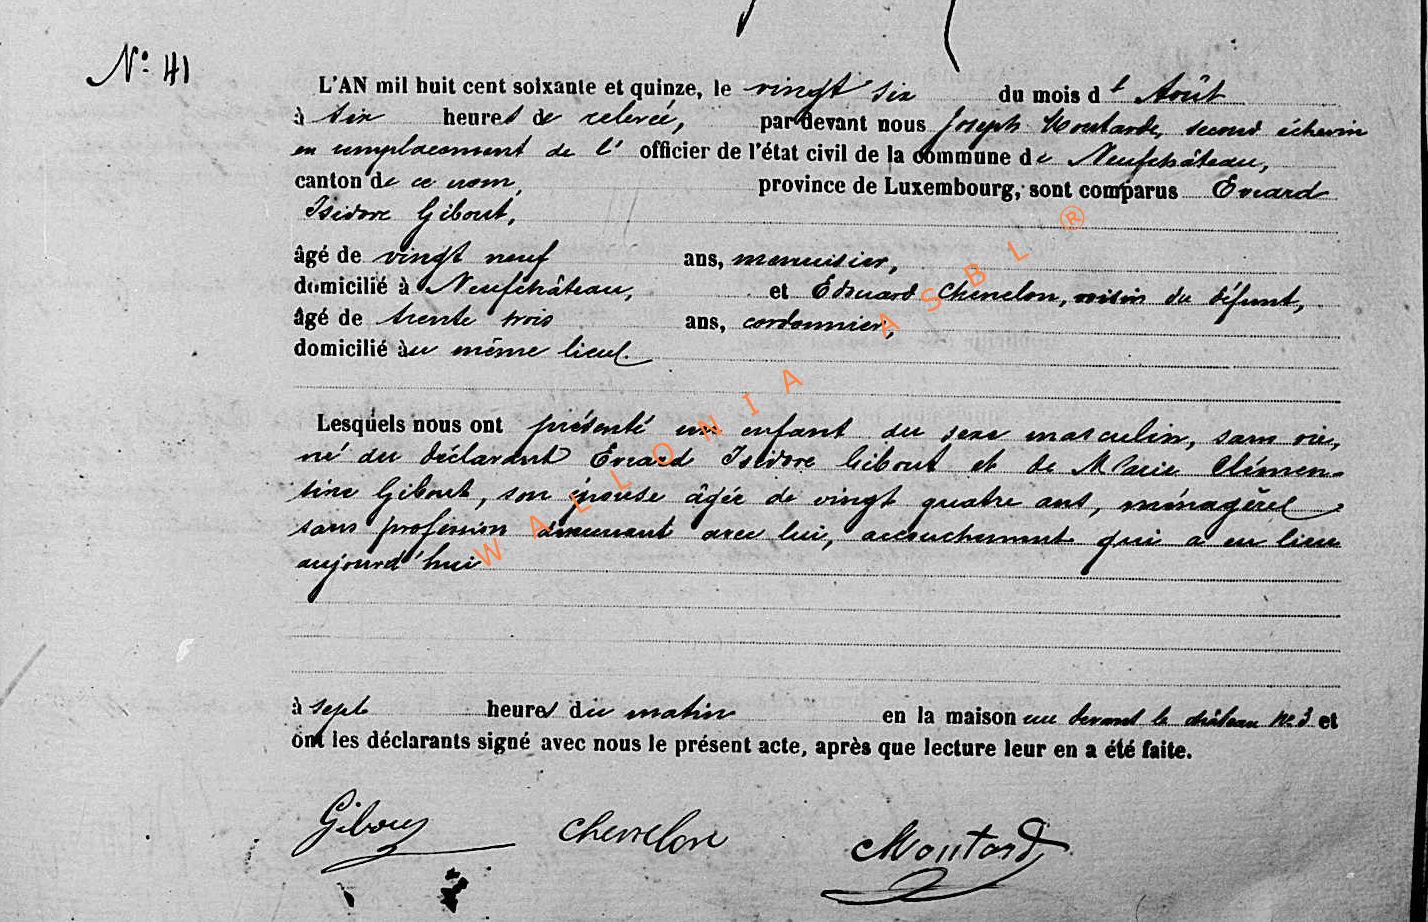 N° 41
L'AN mil huit cent soixante et quinze, le vingt six du mois d' Août
à six heures de relevée, par devant nous Joseph Moutarde, second échevin
en remplacement de l' officier de l'état civil de la commune de Neufchâteau,
canton de ce nom, province de Luxembourg, sont comparus Evrard
Isidore Gibout,
âgé de vingt neuf ans, menuisier,
domicilié à Neufchâteau, et Edouard Chenelon, voisin du défunt,
âgé de trente trois ans, cordonnier,
domicilié au même lieu.
Lesquels nous ont présenté un enfant du sexe masculin, sans vie,
né du déclarant Evrard Isidore Gibout et de Marie Clémen-
tine Gibout, son épouse âgée de vingt quatre ans, ménagère
sans profession demeurant avec lui, accouchement qui a eu lieu
aujourd'hui
à sept heures du matin en la maison rue devant le château N° 3 et
ont les déclarants signé avec nous le présent acte, après que lecture leur en a été faite.
Chenelon
WALLONIA ASBL ®